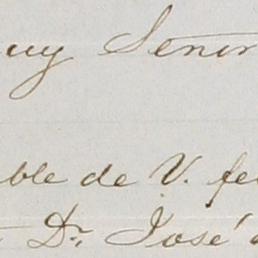 uy Señor
ble de V. fe
Dr. José